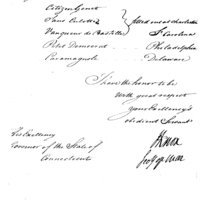 Citizen Genet
Sans Culotte
Vanqueur de Bastille
S Carolina
Petit Democrat Philadelphia
Carmagnole Delaware
I have the honor to be
with great respect
your Excellency's
obedient Servant
His Excellency
Governor of the State of
Connecticut
H Knox
Secy of War